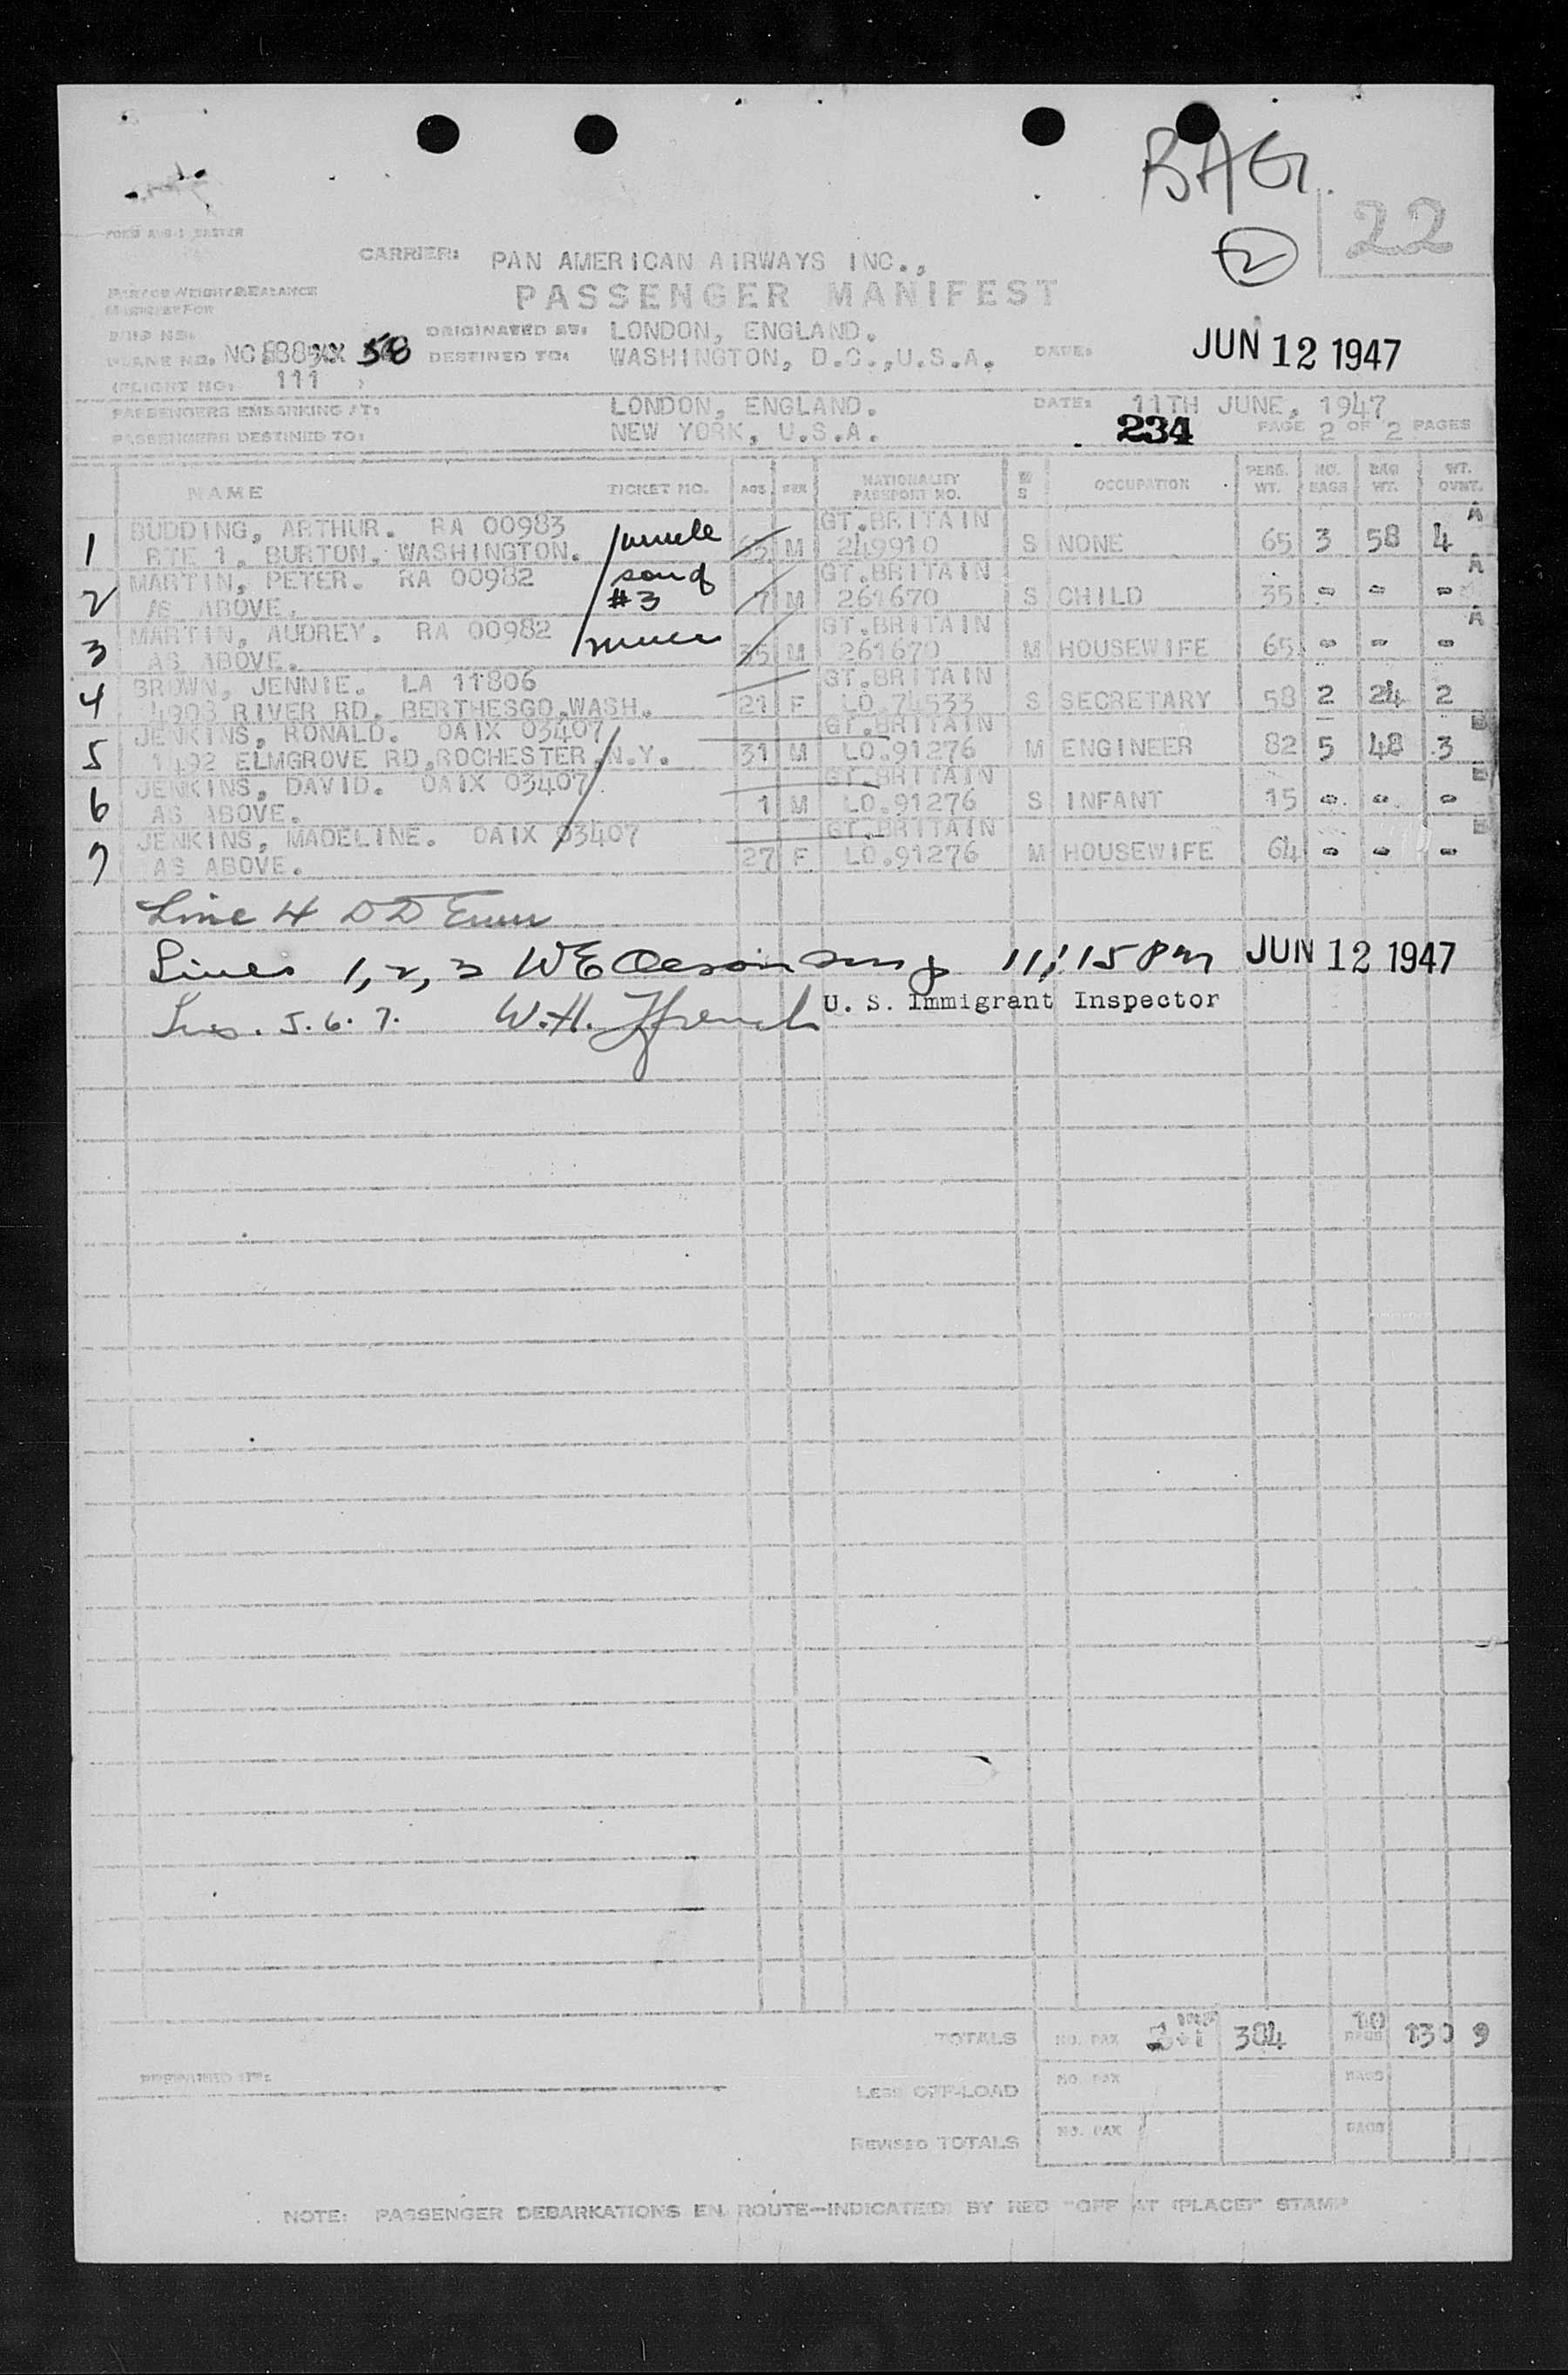 BAG
22
2
FORM
CARRIER: PAN AMERICAN AIRWAYS INC.,
PASSENGER MANIFEST
WEIGHT & BALANCE
MANIFEST FOR
ORIGINATED AT: LONDON, ENGLAND.
PLANE NO. NC 58
DESTINED TO: WASHINGTON, D.C.,U.S.A. DATE: JUN 12 1947
(FLIGHT NO: 111 )
PASSENGERS EMBARKING AT: LONDON, ENGLAND. DATE: 11TH JUNE, 1947
PASSENGERS DESTINED TO: NEW YORK, U.S.A. 234 PAGE 2 OF 2 PAGES
NAME TICKET NO. AGE SEX NATIONALITY PASSPORT NO. M S OCCUPATION PERS. WT. NO. BAGS BAG WT. WT. OVWT.
BUDDING, ARTHUR. RA 00983 uncle GT.BRITAIN A
1 RTE 1, BURTON, WASHINGTON. 65 M 249910 S NONE 65 3 58 4
MARTIN, PETER. RA 00982 son of GT.BRITAIN A
2 AS ABOVE. #3 7 M 261670 S CHILD 35 - - -
MARTIN, AUDREY. RA 00982 GT.BRITAIN A
3 AS ABOVE. 35 M 261670 M HOUSEWIFE 65 - - -
BROWN, JENNIE. LA 11806 GT.BRITAIN
4 4908 RIVER RD. BERTHESGO,WASH. 21 F LO.74533 S SECRETARY 58 2 24 2
JENKINS, RONALD. OAIX 03407 GT.BRITAIN B
5 1492 ELMGROVE RD,ROCHESTER,N.Y. 31 M LO.91276 M ENGINEER 82 5 48 3
JENKINS, DAVID. OAIX 03407 GT.BRITAIN B
6 AS ABOVE. 1 M LO.91276 S INFANT 15 - - -
JENKINS, MADELINE. OAIX 03407 GT.BRITAIN B
7 AS ABOVE. 27 F LO.91276 M HOUSEWIFE 64 - - -
Line 4 DD
Lines 1, 2, 3 WE 11:15 PM JUN 12 1947
U. S. Immigrant Inspector
Lns. 5. 6. 7. W.H. Ffrench
TOTALS NO. PAX 384 10 BAGS 130 9
PREPARED BY:
LESS OFF-LOAD NO. PAX BAGS
REVISED TOTALS NO. PAX BAGS
NOTE: PASSENGER DEBARKATIONS EN ROUTE—INDICATED BY RED "OFF AT (PLACE)" STAMP